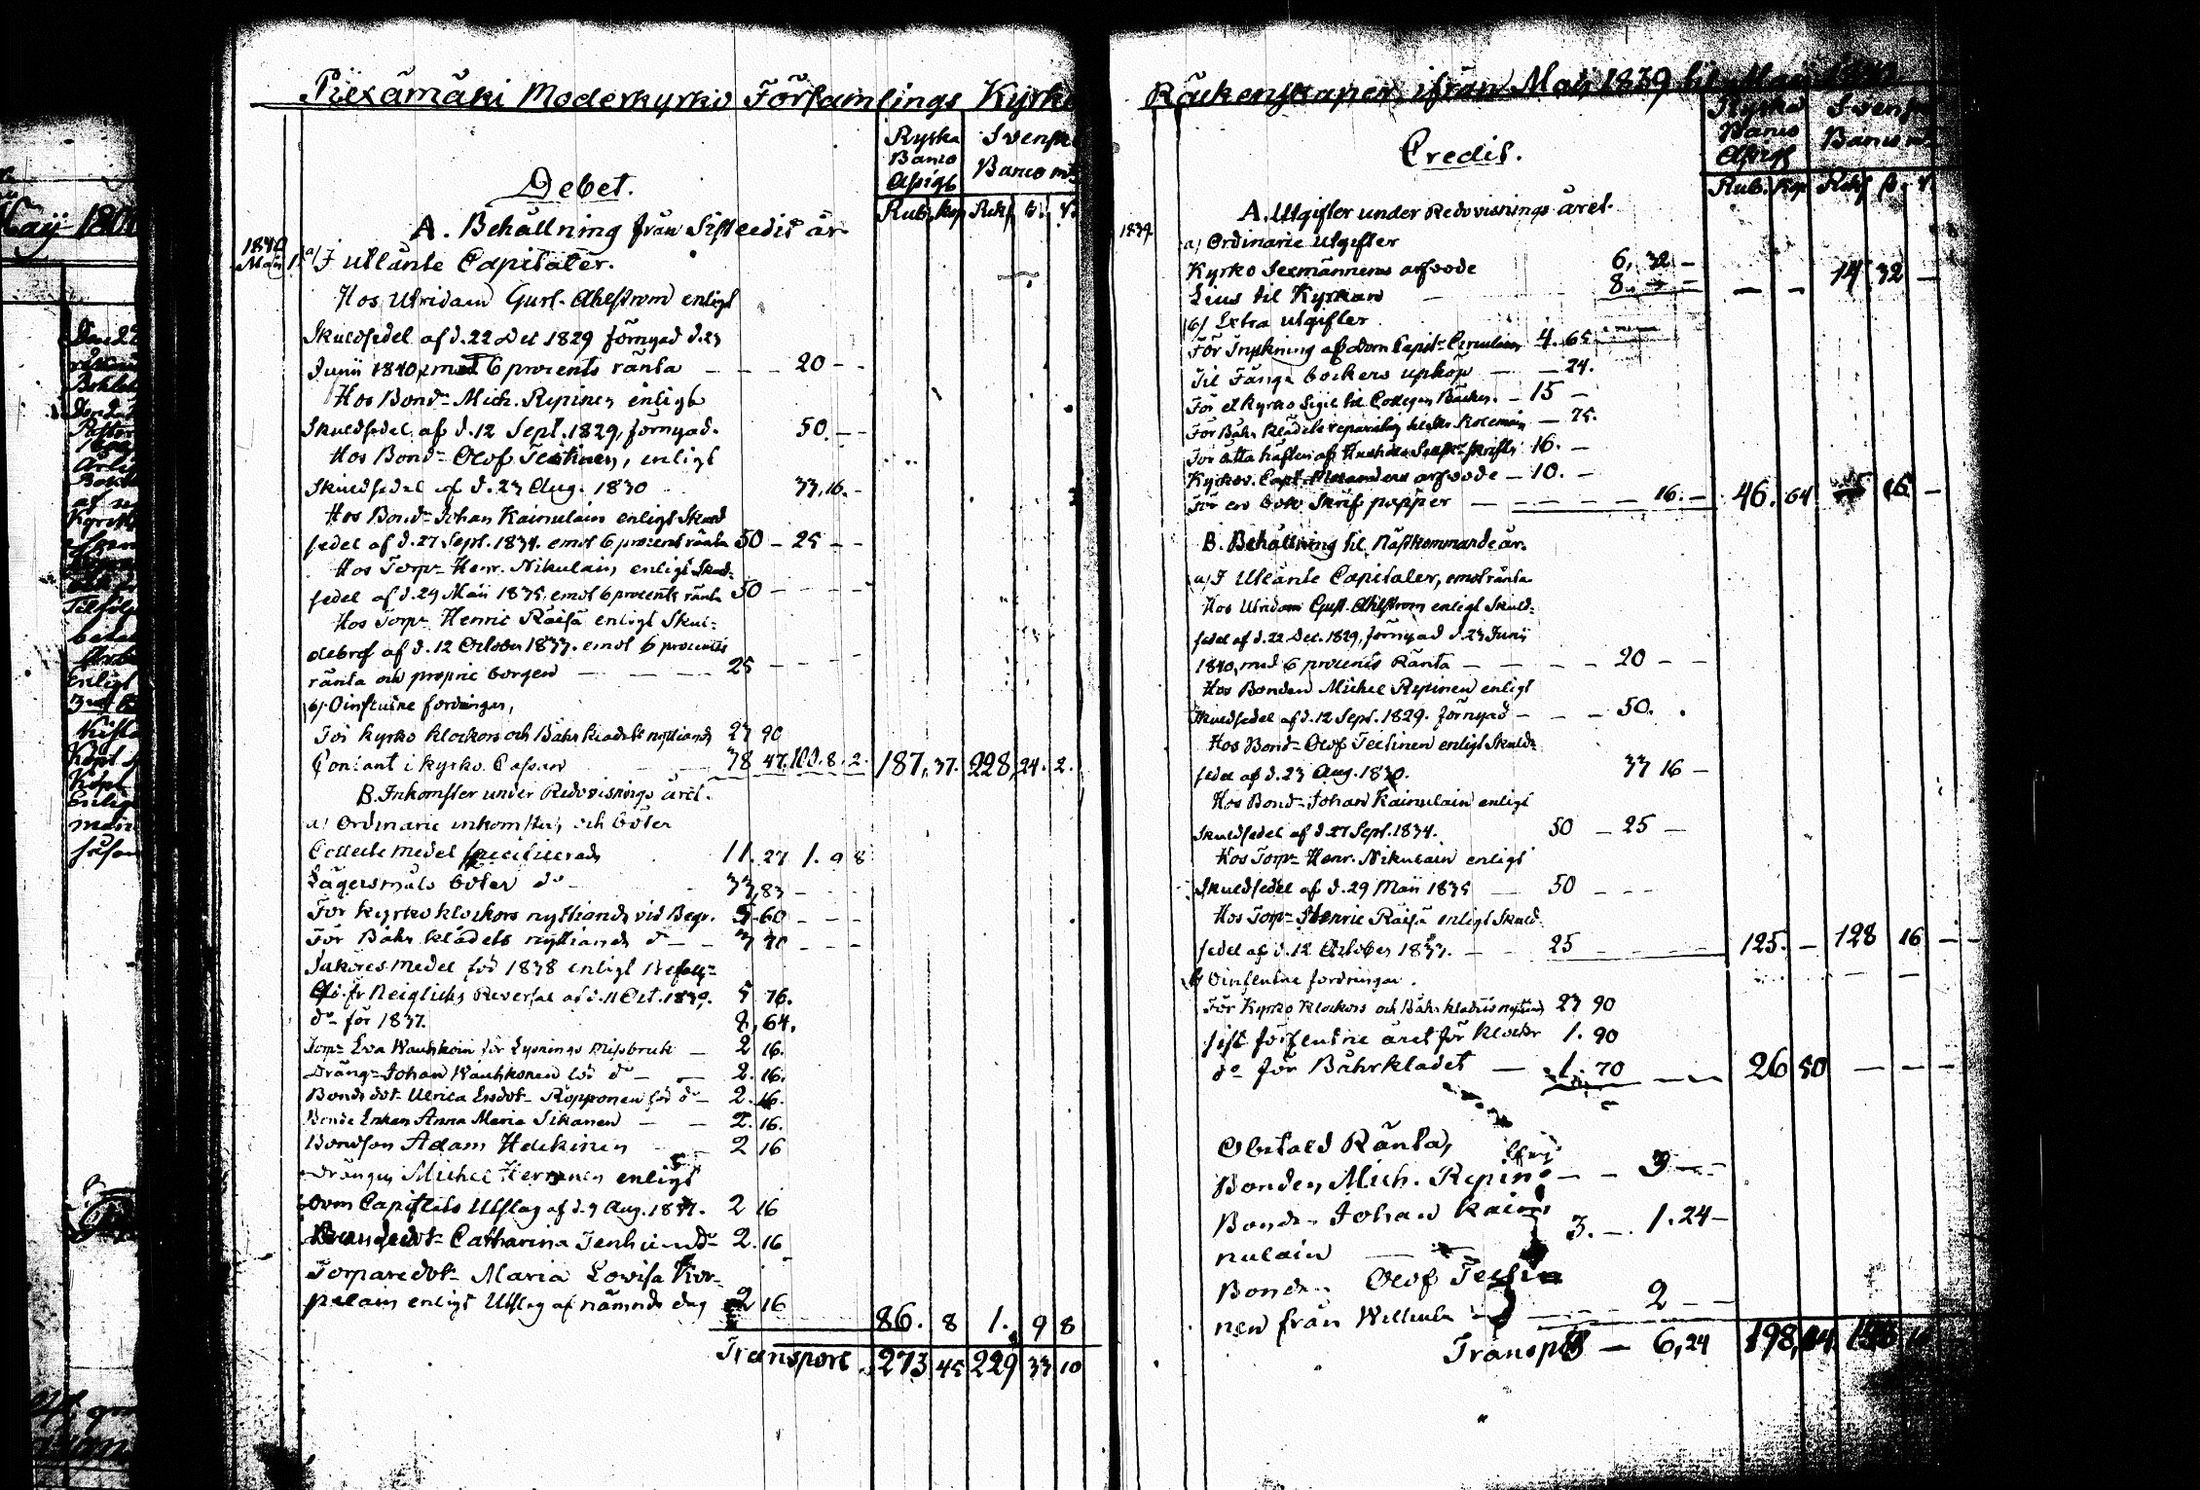 Piexämäki Moderkyrko Församlings Kyrko
Debet.
Ryska Banco Assigt
Svenska Banco mt
Rub. kop Rdr ß. r.
A. Behållning från Sistledit år
1840 Maii 1. a/ I utlånte Capitaler.
Hos Utridarn Gust. Ahlstrom enligt
Skuldsedel af d. 22 Dec 1829 förnyad d. 23
Junii 1840, emot 6 procents ränta — — 20 - -
Hos Bondn Mich. Repinen enligt
Skuldsedel af d. 12 Sept. 1829, förnyad. 50. - -
Hos Bondn Olof Teitinen, enligt
Skuldsedel af d. 23 Aug. 1830 33, 16. -
Hos Bondn Johan Kainulain enligt Skuld
sedel af d. 27 Sept. 1834. emot 6 procent ränta 50 - 25 - -
Hos Torpn Henr. Nikulain enligt Skuld-
sedel af d. 29 Maii 1835, emot 6 procents ränta 50 - - - -
Hos Torpn Henric Räisä enligt Skul-
debref af d. 12 October 1833. emot 6 procents
ränta och proprie borgen — — — 25 - - - -
b/ Oinflutne fordringar,
För kyrko klockors och Båhrklädets nyttiande 23 90
Contant i kyrko Cassan 78 47. 100. 8. 2. 187, 37. 228, 24. 2.
B. Inkomster under Redovisnings året.
a/ Ordinarie inkomster, och böter
Collecte medel specificerade 11. 27 1. 9 8
Lägersmåls böter do 33, 83 - - -
För kyrko klockors nyttiande vid Begr. 5. 60 - - -
För Båhr klädets nyttiande do - - 3 40 - - -
Sakörес medel för 1838 enligt Befalln
Reversal af d. 11 Oct. 1839. 5 76.
do för 1837. 8, 64.
Torpn Eva Wauhkoin för Lysnings missbruk — 2 16.
Drängn Johan Wauhkonen för do — — 2. 16.
Bonde dotn Ulrica Ersdotn Ropponen för do — 2. 16.
Bonde Enkan Anna Maria Sikanen — — 2. 16.
Bondson Adam Heikinen 2 16
Drängen Michel enligt
Dom Capitlets Utslag af d. 7 Aug. 2 16
Catharina do 2. 16
Torparedotn Maria Lovisa Kor-
pelain enligt Utslag af nämnde dag 2 16 86. 8 1. 9 8
Transport 273 45 229 33 10
Räkenskaper, ifrån Maij 1839 til Maij 1840
Credit.
Ryska Banco Assigt
Svenska Banco mt
Rub. Kop Rdr ß. r.
1839 A. Utgifter under Redovisnings året.
a/ Ordinarie Utgifter
Kyrko Sexmännens arfvode 6, 32 -
Ljus til Kyrkan 8. - - — — 14 32 —
b/ Extra utgifter
För Tryckning af Dom Capit. Circulair 4. 65
Til Fånge böckers upköp — — 24.
För et kyrko Sigil til Collegan Bäcker. — 15 —
För Båhr klädets reparation — 75.
För åtta häften af 16. —
Kyrkov. Capt. arfvode — 10. —
För en bok Skrif papper — — — — 16. — 46. 64 — 16 —
B. Behållning til Nästkommande år.
a/ I Utlånte Capitaler, emot ränta
Hos Utridarn Gust. Ahlstrom enligt Skuld-
sedel af d. 22 Dec. 1829, förnyad d. 23 Junii
1840, med 6 procents Ränta — — — — 20 — —
Hos Bonden Michel Repinen enligt
Skuldsedel af d. 12 Sept. 1829. förnyad — — — 50. .
Hos Bondn Olof Teitinen enligt Skuld-
sedel af d. 23 Aug. 1830. 33 16 —
Hos Bondn Johan Kainulain enligt
Skuldsedel af d. 27 Sept. 1834. 50 — 25 —
Hos Torpn Henr. Nikulain enligt
Skuldsedel af d. 29 Maii 1835 — 50 - - -
Hos Torpn Henric Räisä enligt Skuld-
sedel af d. 12 October 1833. — — 25 125. — 128 16 —
b/ Oinflutne fordringar.
För Kyrko Klockors och Båhr klädets nyttiande 23 90
sist förflutne året för klockor 1. 90
do för Båhrklädet — 1. 70 26 50 — — —
Obetald Ränta,
Bonden, Mich. Repin — — 3 — —
Bondn Johan Kai-
nulain 3. — 1. 24 —
Bondn Olof Teiti-
nen från 2 — —
Transport — 6, 24 198,